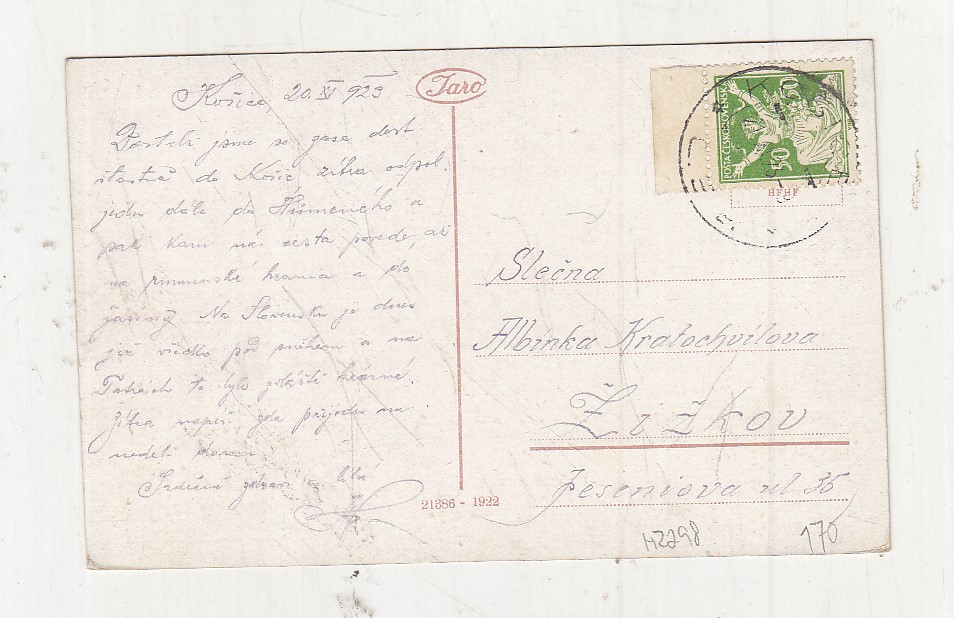 Košice 20. XI 923
Taro
Dostali jsme se zase dost
šťastně do Košic zítra odpol.
jedu dále do Humeného a
pak kam nás cesta povede, až
na rumunské hranice a do
Jasiny. Na Slovensku je dnes
již všedko pod sněhem a na
Tatrách to bylo zvláště krásné.
Zítra napíši, zda přijedu na
neděli domu
Srdečně zdraví a líbá
POŠTA ČESKOSLOVENSKÁ
50
50
HFHF
Slečna
Albínka Kratochvílova
Žižkov
Jeseniova ul 35
21386 - 1922
MZ298
170